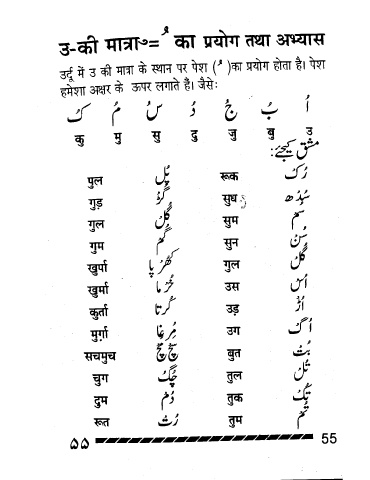 उ-की मात्रा= ُ का प्रयोग तथा अभ्यास
उर्दू में उ की मात्रा के स्थान पर पेश ( ُ )का प्रयोग होता है। पेश
हमेशा अक्षर के ऊपर लगाते हैं। जैसेः
اُ بُ جُ دُ سُ مُ کُ
उ बु जु दु सु मु कु
مشق کیجئے:
रूक رُک पुल پُل
सुध سُدھ गुड़ گُڑ
सुम سُم गुल گُل
सुन سُن गुम گُم
गुल گُل खुर्पा کُھرپا
उस اُس खुर्मा خُرما
उड़ اُڑ कुर्ता کُرتا
उग اُگ मुर्ग़ा مُرغا
बुत بُت सचमुच سچ مُچ
तुल تُل चुग چُگ
तुक تُک दुम دُم
तुम تُم रूत رُت
۵۵ 55